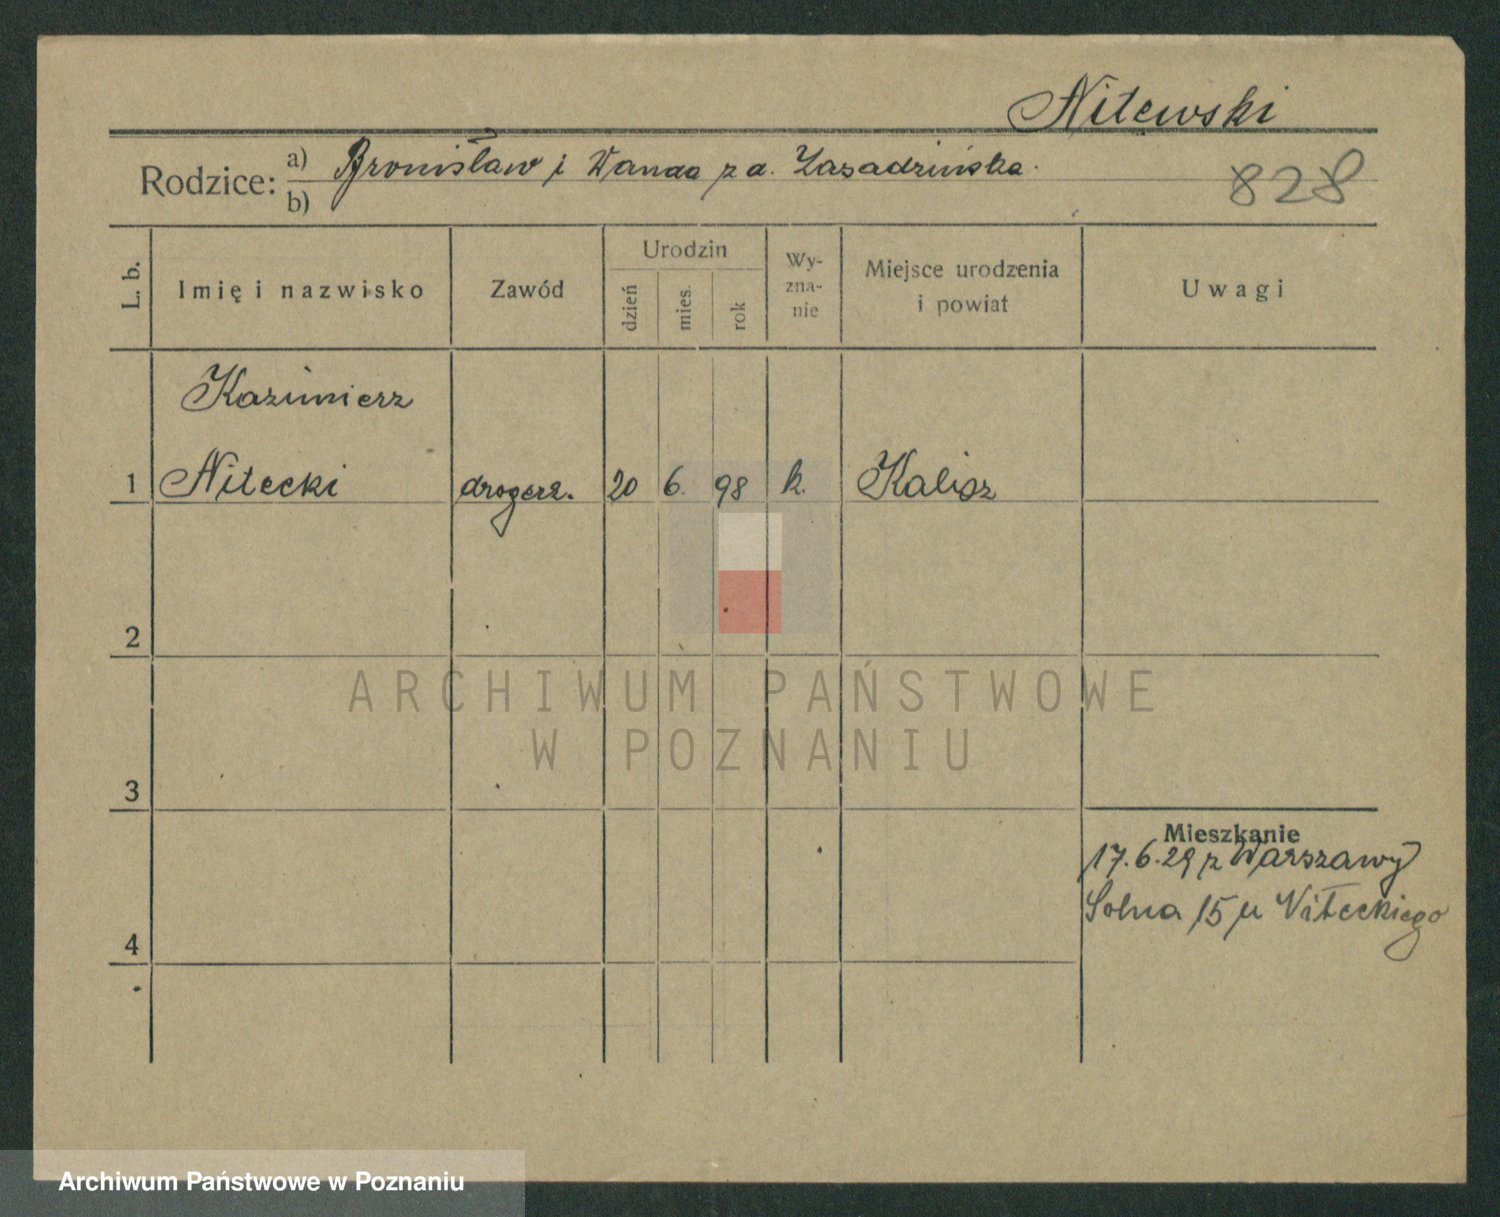 Nitewski
Rodzice: a) Bronisław i Wanda z d. Zasadzińska.
b)
828
L. b. Imię i nazwisko Zawód Urodzin dzień mies. rok Wyzna-nie Miejsce urodzenia i powiat Uwagi
Kazimierz
1 Nitecki drogerz. 20 6. 98 k. Kalisz
2
ARCHIWUM PAŃSTWOWE
W POZNANIU
3
Mieszkanie
17.6.29 z Warszawy
Solna 15 u Niteckiego
4
Archiwum Państwowe w Poznaniu